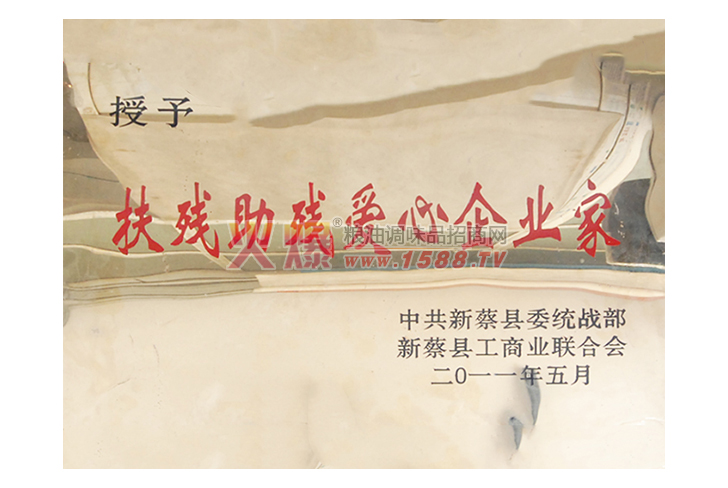 授予
扶残助残爱心企业家
火爆®粮油调味品招商网
www.1588.TV
中共新蔡县委统战部
新蔡县工商业联合会
二0一一年五月